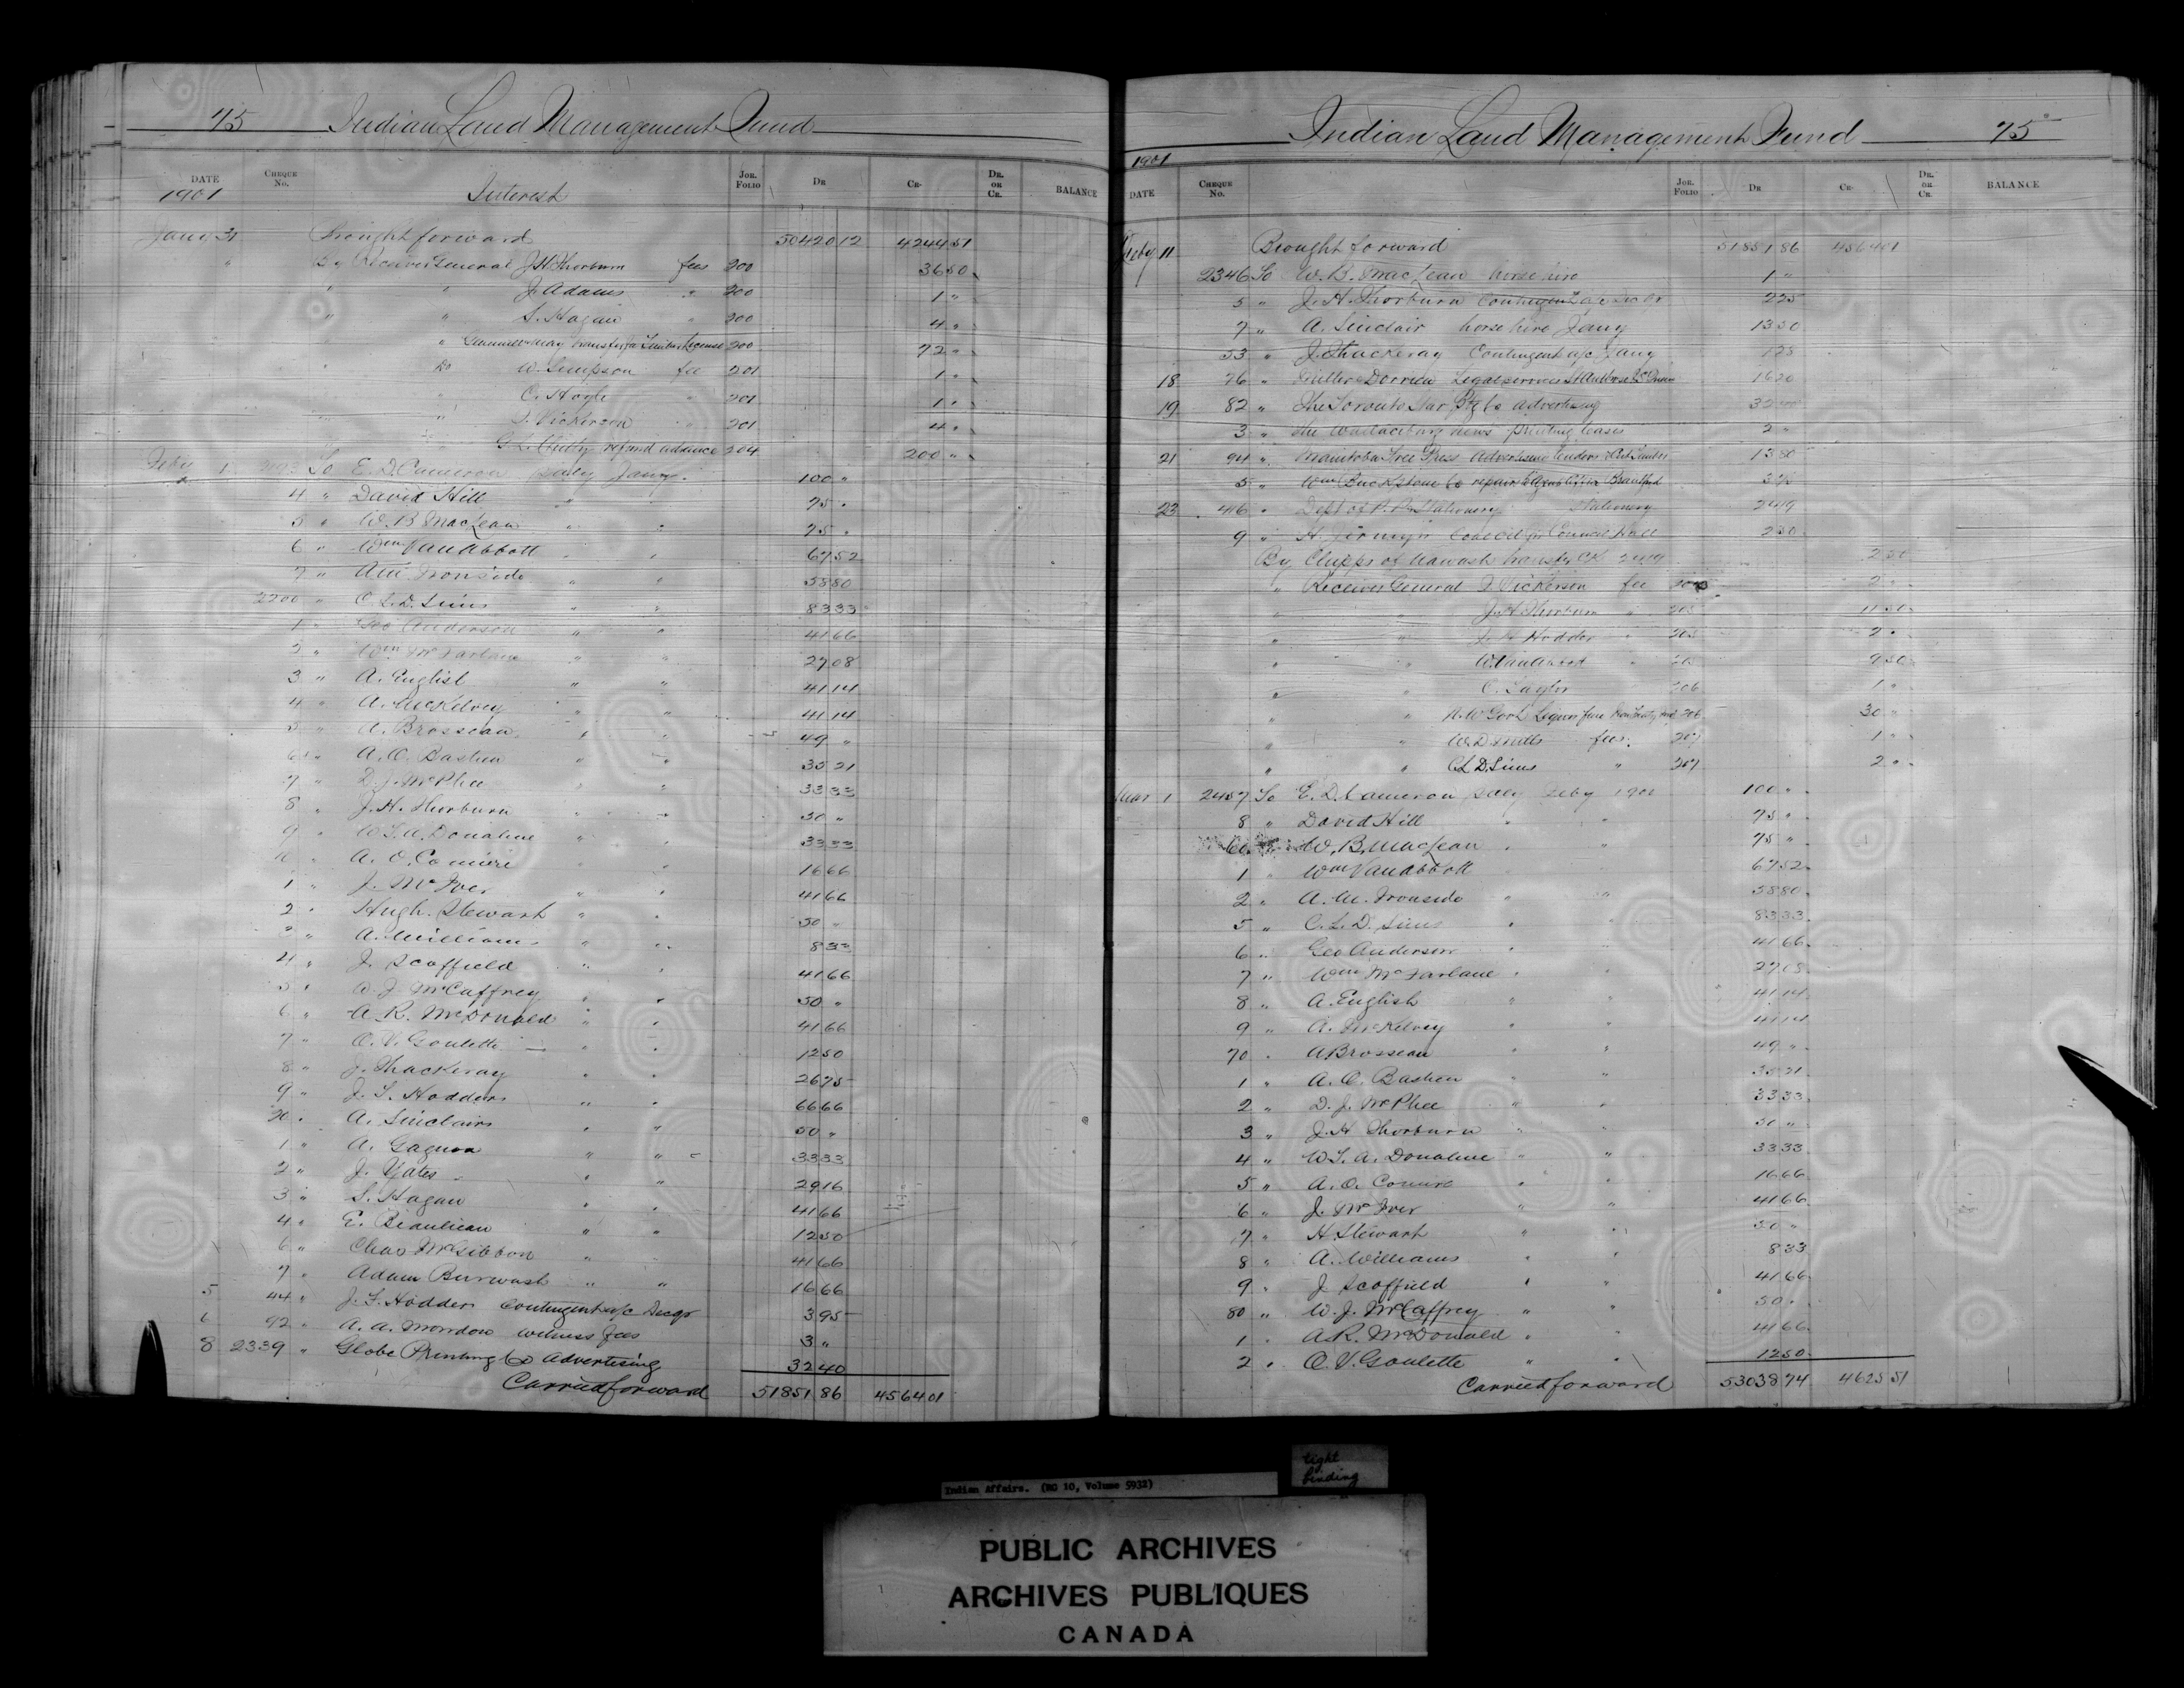 75 Indian Land Management Fund
DATE CHEQUE No. JOR. FOLIO DR CR- DR. OR CR. BALANCE
1901 Interest
Jany 31 Brought forward 50420 12 4244 51
" By Receiver General J.H. Thorburn fees 200 36 50
" " J. Adams " 200 1 "
" " S. Hagan " 200 4 "
" transfer Timber License 200 72 "
" Do W. Simpson fee 201 1 "
" C. Hoyle " 201 1 "
" Vickerson " 201 4 "
refund advance 204 200 "
Feby 1 2193 To E.D. Cameron saly Jany. 100 "
4 " David Hill " " 75 "
5 " W.B MacLean " " 75 "
6 " Wm Van Abbott " " 67 52
7 " Ironside " " 58 80
2200 " C.L.D. Sims " " 83 33
1 " Geo Anderson " " 41 66
2 " Wm McFarlane " " 27 08
3 " A. English " " 41 14
4 " A. McKelvey " " 41 14
5 " A. Brosseau " " 49 "
6 " A.O. Bastien " " 35 21
7 " D.J. McPhee " " 33 33
8 " J.H. Thorburn " " 50 "
9 " W.S.A. Donahue " " 33 33
10 " A.O. Comire " " 16 66
1 " J. McIver " " 41 66
2 " Hugh. Stewart " " 50 "
3 " A. Williams " " 8 33
4 " J. Scoffield " " 41 66
5 " W.J. McCaffrey " " 50 "
6 " A.R. McDonald " " 41 66
7 " O.V. Goulette " " 12 50
8 " J. Thackeray " " 26 75
9 " J.S. Hodder " " 66 66
20 " A. Sinclair " " 50 "
1 " A. Gagnon " " 33 33
2 " J. Yates " " 29 16
3 " S. Hagan " " 41 66
4 " E. Beaulieau " " 12 50
6 " Chas McGibbon " " 41 66
7 " Adam Burwash " " 16 66
5 44 " Hodder Contingent a/c Decqr 3 95
6 92 " A.A. witness fees 3 "
8 2339 " Globe Printing Co Advertising 32 40
Carried forward 51851 86 4564 01
Indian Land Management Fund 75
1901
DATE CHEQUE No. JOR. FOLIO DR CR- DR. OR CR. BALANCE
Feby 11 Brought forward 51851 86 4564 01
2346 To W.B. MacLean horse hire 1 "
5 " J.H. Thorburn Contingent a/c Dec Qr 2 25
7 " A. Sinclair horse hire Jany 13 50
53 " J. Thackeray Contingent a/c Jany 1 25
18 76 " Dorrien Legal services 16 20
19 82 " The Toronto Star Ptg Co advertising
3 " The Wallaceburg News printing leases 2 "
21 94 " Manitoba Free Press 13 80
5 " Wm Buck Stove Co repairs Brantford
23 416 " Dept of P. P. & Stationery Stationery 24 19
9 " H. Council Hall 2 50
By Chipps of Nawash transfer 2419 2 50
" Receiver General Vickerson fee 2 "
" " J.H. Thorburn " 205
" " Hodder " 205 2 "
" " W. Van Abbott " 205 9 50
" " C. Taylor 206 1 "
" " N.W Govt Liquor fine 206 30 "
" " W.D. Mills fees 207 1 "
" " C.L.D. Sims " 207 2 "
Mar 1 2457 To E.D. Cameron saly Feby 1900 100 "
8 " David Hill " " 75 "
60 W.B. MacLean " " 75 "
1 " Wm Van Abbott 67 52
2 " A. Ironside " " 58 80
5 " C.L.D. Sims " " 83 33
6 " Geo Anderson " 41 66
7 " Wm McFarlane " " 27 08
8 " A. English " " 41 14
9 " A. McKelvey " " 41 14
70 " A Brosseau " " 49 "
1 " A.O. Bastien " " 35 21
2 " D.J. McPhee " " 33 33
3 " J.H Thorburn " " 50 "
4 " W.S.A. Donahue " " 33 33
5 " A.O. Comire " " 16 66
6 " J. McIver " " 41 66
7 " H. Stewart " " 50 "
8 " A. Williams " " 8 33
9 " J Scoffield " " 41 66
80 " W.J. McCaffrey " " 50 "
1 " A.R. McDonald " 41 66
2 " O.V. Goulette " " 12 50
Carried forward 53038 74 4625 51
tight
binding
Indian Affairs. (RG 10, Volume 5932)
PUBLIC ARCHIVES
ARCHIVES PUBLIQUES
CANADA